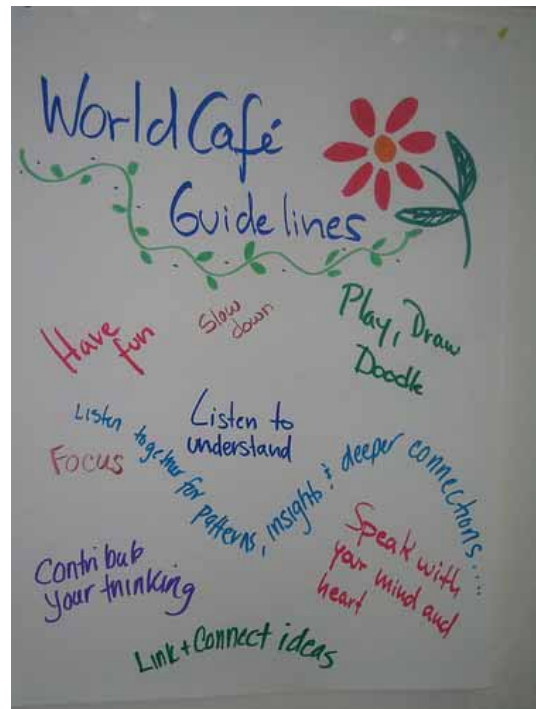 World Café
Guidelines
Have
fun
Slow
down
Play, Draw
Doodle
Listen to
understand
Listen together for patterns, insights & deeper connections....
Focus
Speak with
your mind and
heart
Contribute
your thinking
Link + Connect ideas